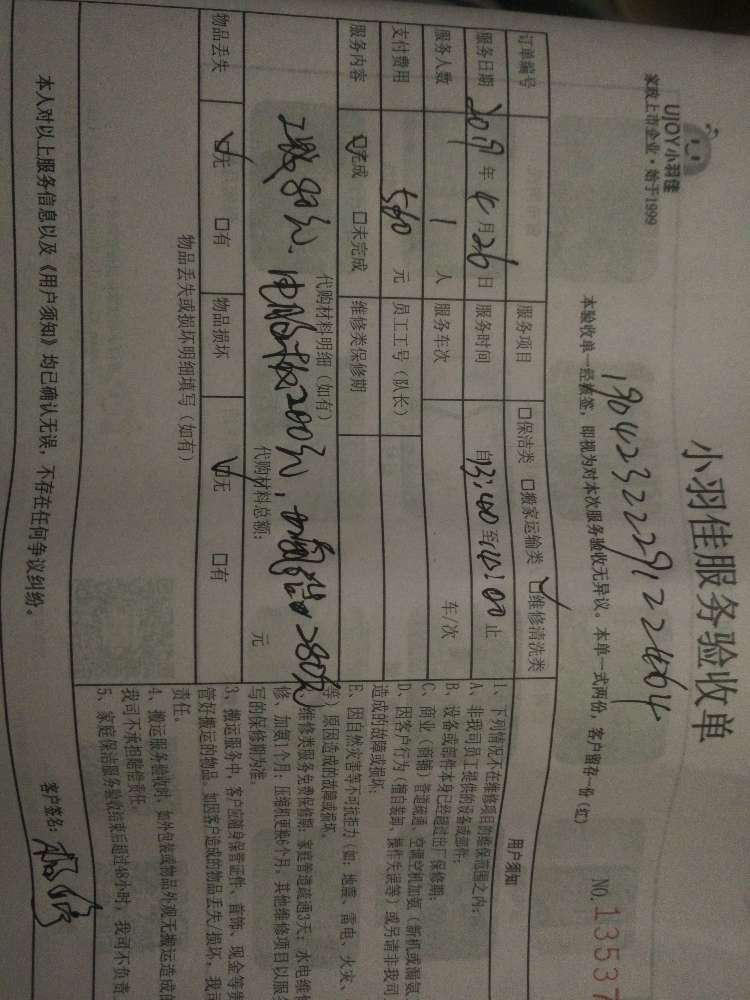 UJOY小羽佳
家政上市企业·始于1999
小羽佳服务验收单
本验收单一经核签,即视为对本次服务验收无异议。本单一式两份,客户留存一份(红)
NO.13537
订单编号 19042322291224004
服务日期 2019年4月26日 服务项目 □保洁类 □搬家运输类 ☑维修清洗类
服务人数 1人 服务时间 自13:40至14:00止
支付费用 560元 服务车次 车/次
员工工号(队长)
服务内容 ☑完成 □未完成 维修类保修期
代购材料明细(如有)
电脑板200元,加氟 280元
代购材料总额: 元
物品丢失 ☑无 □有 物品损坏 ☑无 □有
物品丢失或损坏明细填写(如有)
用户须知
1、下列情况不在维修项目的维保范围之内:
A、非我司员工提供的设备或部件;
B、设备或部件本身已经超过出厂保修期;
C、商业(商铺)管道疏通、空调空机加氨(新机或漏氨
D、因客户行为(擅自装卸、操作失误等)或另请非我司
造成的故障或损坏;
E、因自然灾害等不可抗拒力(如:地震、雷电、火灾、
等)原因造成的故障或损坏。
维修类服务免费保修期:家庭管道疏通3天;水电维
修、加氨1个月;压缩机更换6个月,其他维修项目以服
写的保修期为准。
3、搬运服务中,客户应随身保管证件、首饰、现金等贵
管好搬运的物品。如因客户造成的物品丢失/损坏,我司
责任。
4、搬运服务验收时,如外包装或物品外观无搬运造成的
我司不承担赔偿责任。
5、家庭保洁服务验收结束后超过48小时,我司不负责
本人对以上服务信息以及《用户须知》均已确认无误,不存在任何争议纠纷。
客户签名: